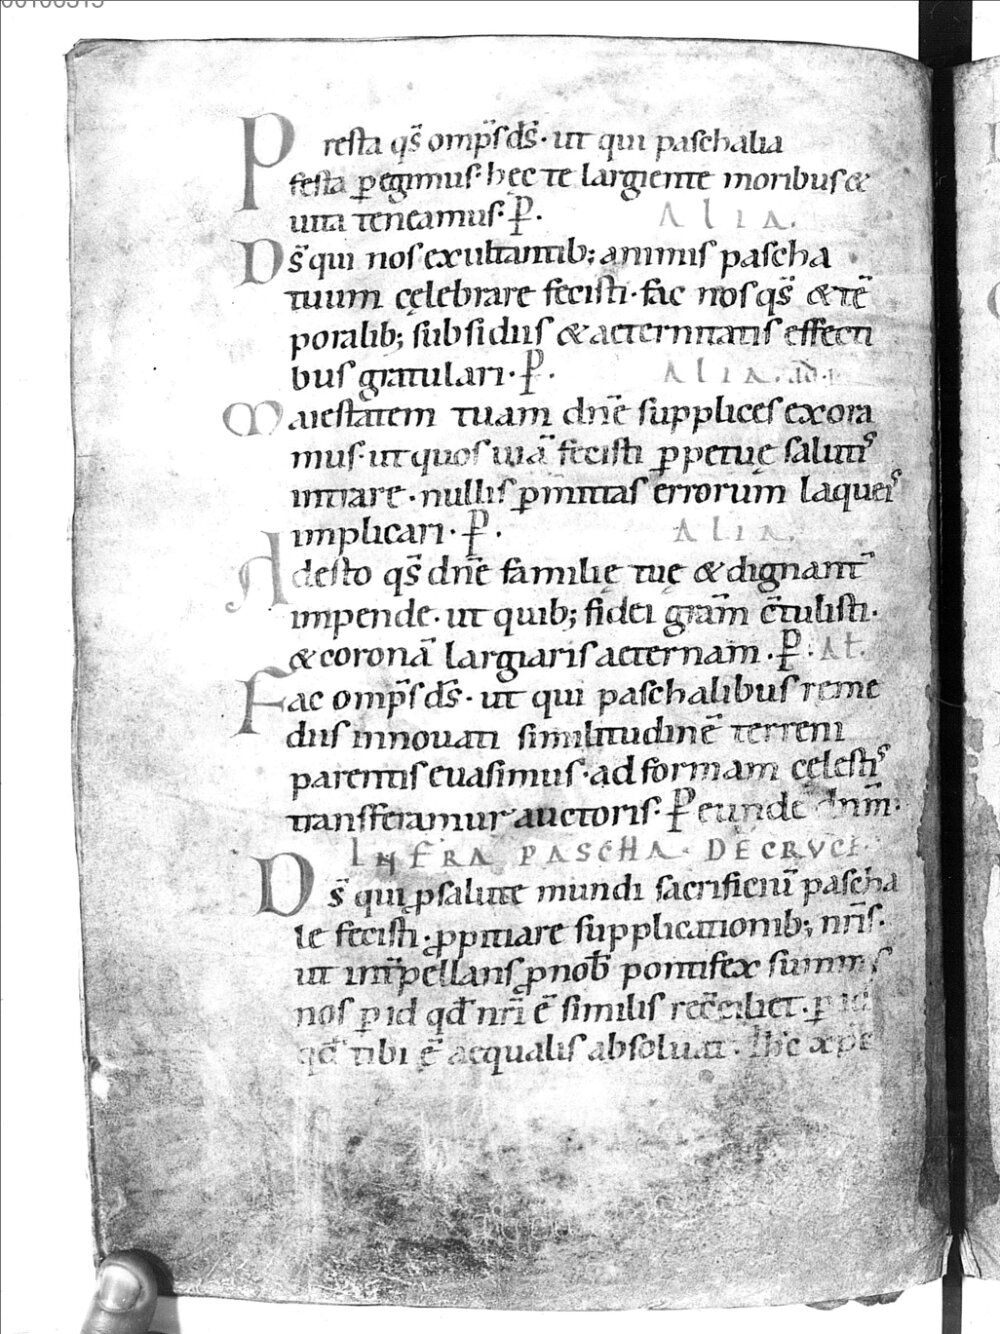 Presta qs̄ omp̄s ds̄· ut qui paschalia
festa ꝑegimus· hęc te largiente moribus &
uita teneamus· ꝑ. ALIA.
Ds̄ qui nos exultantib; animis pascha
tuum cęlebrare fecisti· fac nos qs̄ & tē
poralib; subsidiis & aeternitatis effecti
bus gratulari· ꝑ. ALIA. ad
Maiestatem tuam dn̄e supplices exora
mus· ut quos uiā fecisti ꝑpetuę salutis
intrare· nullis ꝑmittas errorum laqueis
implicari· ꝑ. ALIA.
Adesto qs̄ dn̄e familię tuę & dignant̄
impende· ut quib; fidei gram̄ c̄tulisti·
& coronā largiaris aeternam· ꝑ: Ał.
Fac omp̄s ds̄· ut qui paschalibus reme
diis innouati similitudinē terreni
parentis euasimus· ad formam cęlestis
transferamur auctoris· ꝑ eundē dn̄m·
INFRA PASCHA· DE CRVCE
Ds̄ qui ꝓ salute mundi sacrificiū pascha
le fecisti· ꝓpitiare supplicationib; nr̄is·
ut int̄pellans ꝓ nob̄ pontifex summus
nos ꝑ id qd̄ nr̄i ē similis rec̄ciliet· ꝑ id
qd̄ tibi ē aequalis absoluat· ih̄c xp̄c